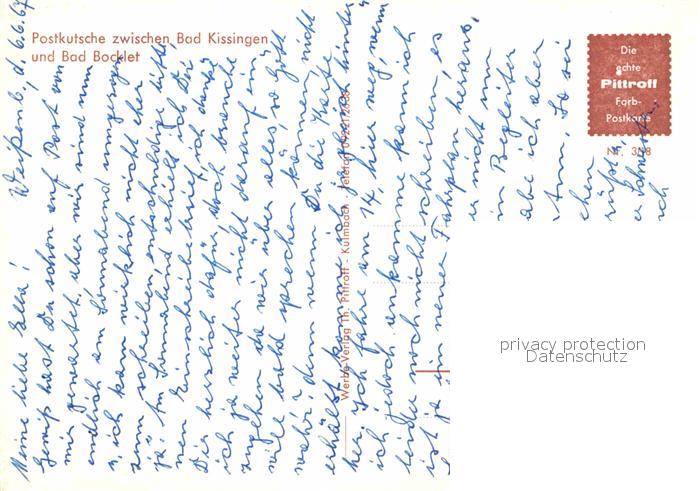 Postkutsche zwischen Bad Kissingen
und Bad Bocklet
Die
echte
Pittroff
Farb-
Postkarte
Nr. 398
Werbe-Verlag Th. Pittroff · Kulmbach · Telefon
privacy protection
Datenschutz
d. 6.6.67
Meine liebe Ella!
Gewiß hast Du schon auf Post von
mir gewartet, aber wir sind nun
endlich am Sonnabend umgezogen
u. ich kam wirklich nicht eher
zum schreiben, entschuldige bitte
ja! Am Sonnabend erhielt ich Dei
nen Einschreibebrief, ich danke
Dir herzlich dafür, doch brauche
ich ja weiter nicht darauf ein
zugehen da wir über alles, so Gott
will bald sprechen können, nicht
wahr? denn wenn Du die Karte
erhältst komme ich ja gleich hinter
her. Ich fahre am 14. hier weg, wenn
ich jedoch ankomme kann ich
leider noch nicht schreiben, es
ist ja ein neuer Fahrplan heraus,
er nicht nun
in Begleiter
abe ich aber
tun. So sei
chen